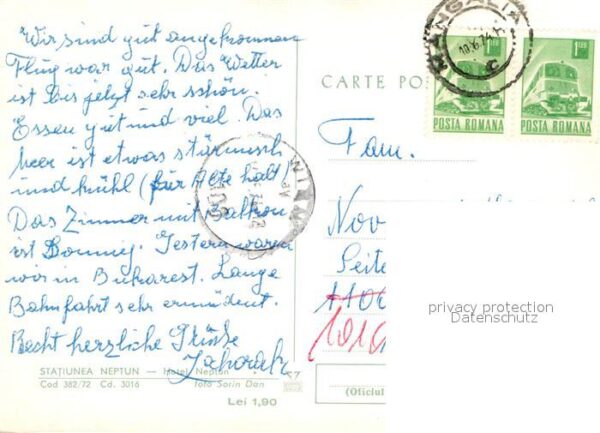 Wir sind gut angekommen
Flug war gut. Das Wetter
ist bis jetzt sehr schön.
Essen gut und viel. Das
Meer ist etwas stürmisch
und kühl (für Alte halt)
Das Zimmer mit Balkon
ist sonnig. Gestern waren
wir in Bukarest. Lange
Bahnfahrt sehr ermüdent.
Recht herzliche Grüße
STAȚIUNEA NEPTUN — Hotel Neptun
Cod 382/72 Cd. 3016 foto Sorin Dan
Lei 1,90
CARTE PO
MANGALIA
1 LEU
POSTA ROMANA
POSTA ROMANA
Fam.
Nov
Seite
1101
privacy protection
Datenschutz
(Oficiul